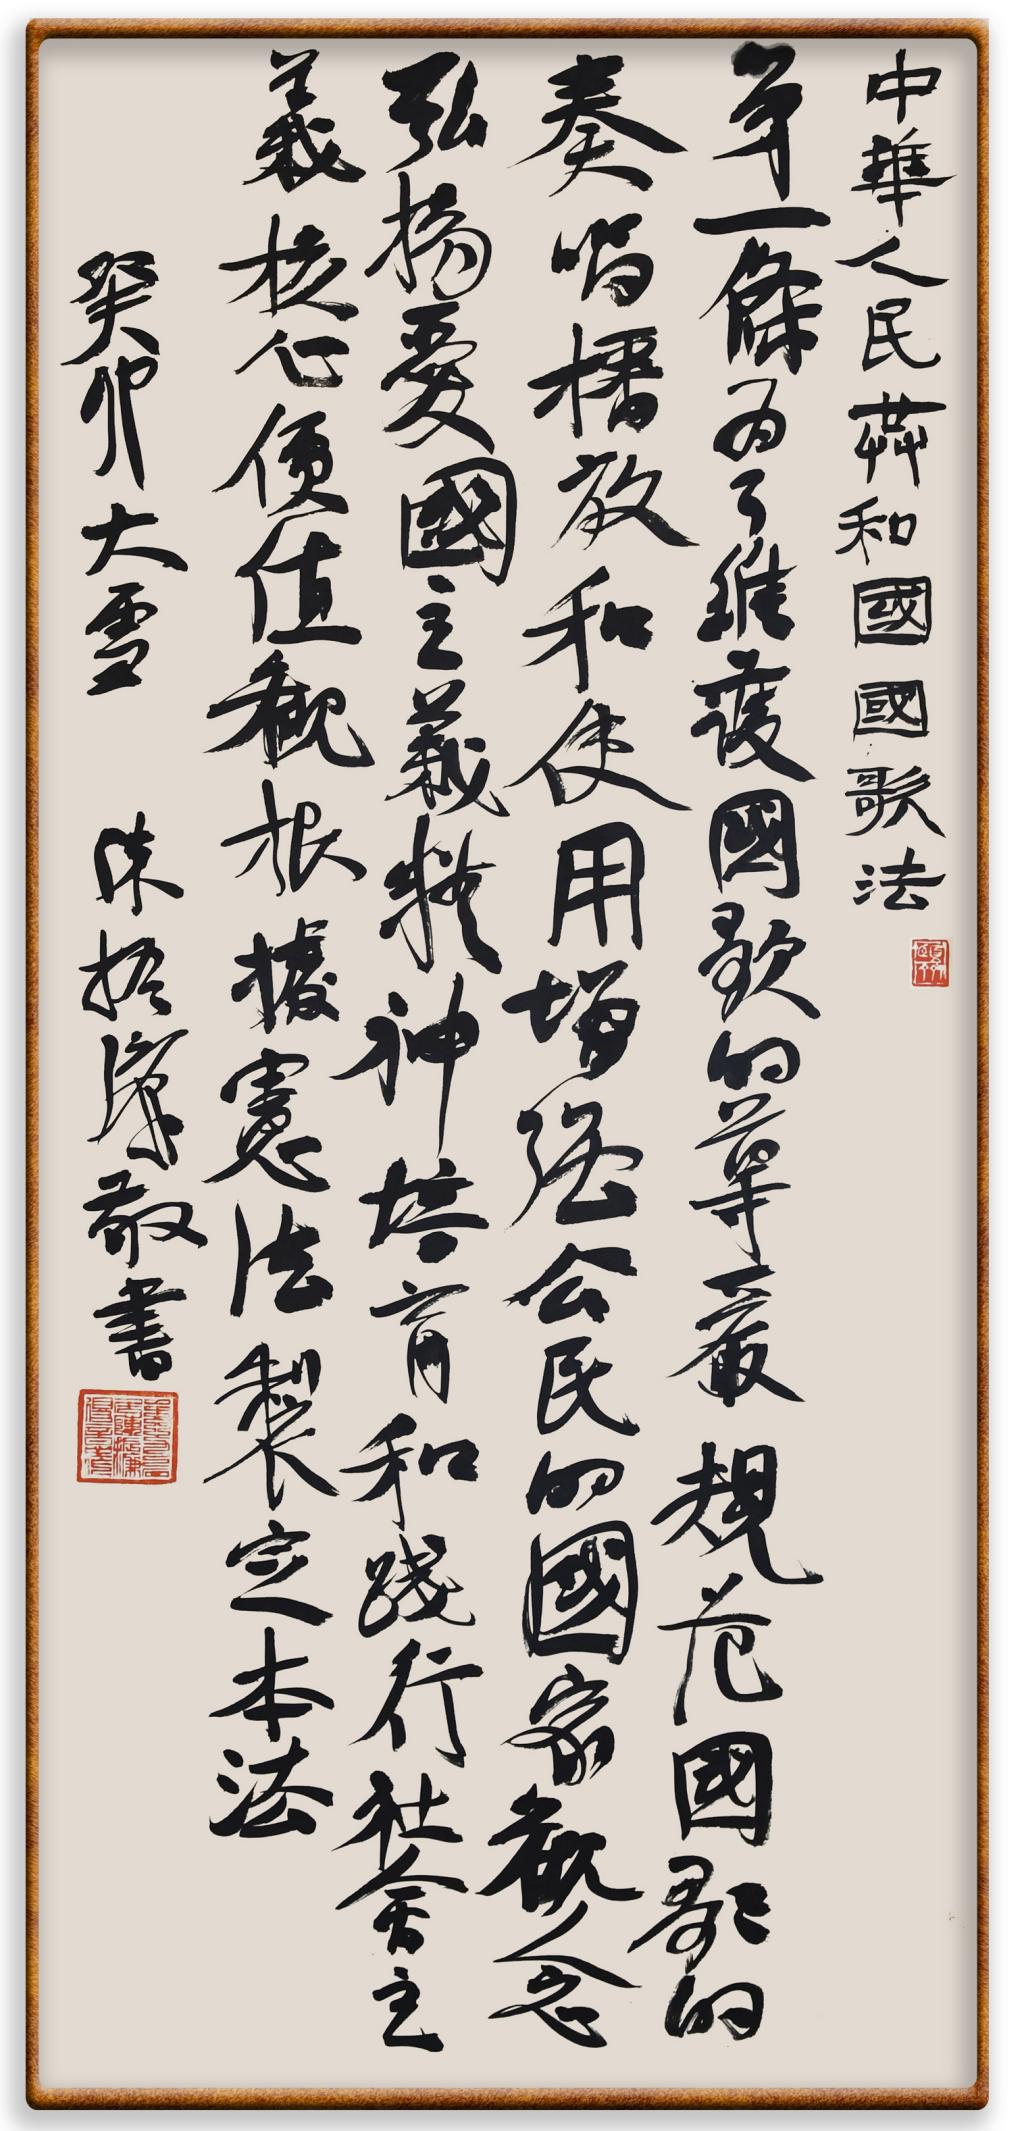 中華人民共和國國歌法
第一條為了維護國歌的尊嚴規范國歌的
奏唱播放和使用增强公民的國家觀念
弘揚愛國主義精神培育和踐行社會主
義核心價值觀根據憲法製定本法
癸卯大雪 陳振濂敬書